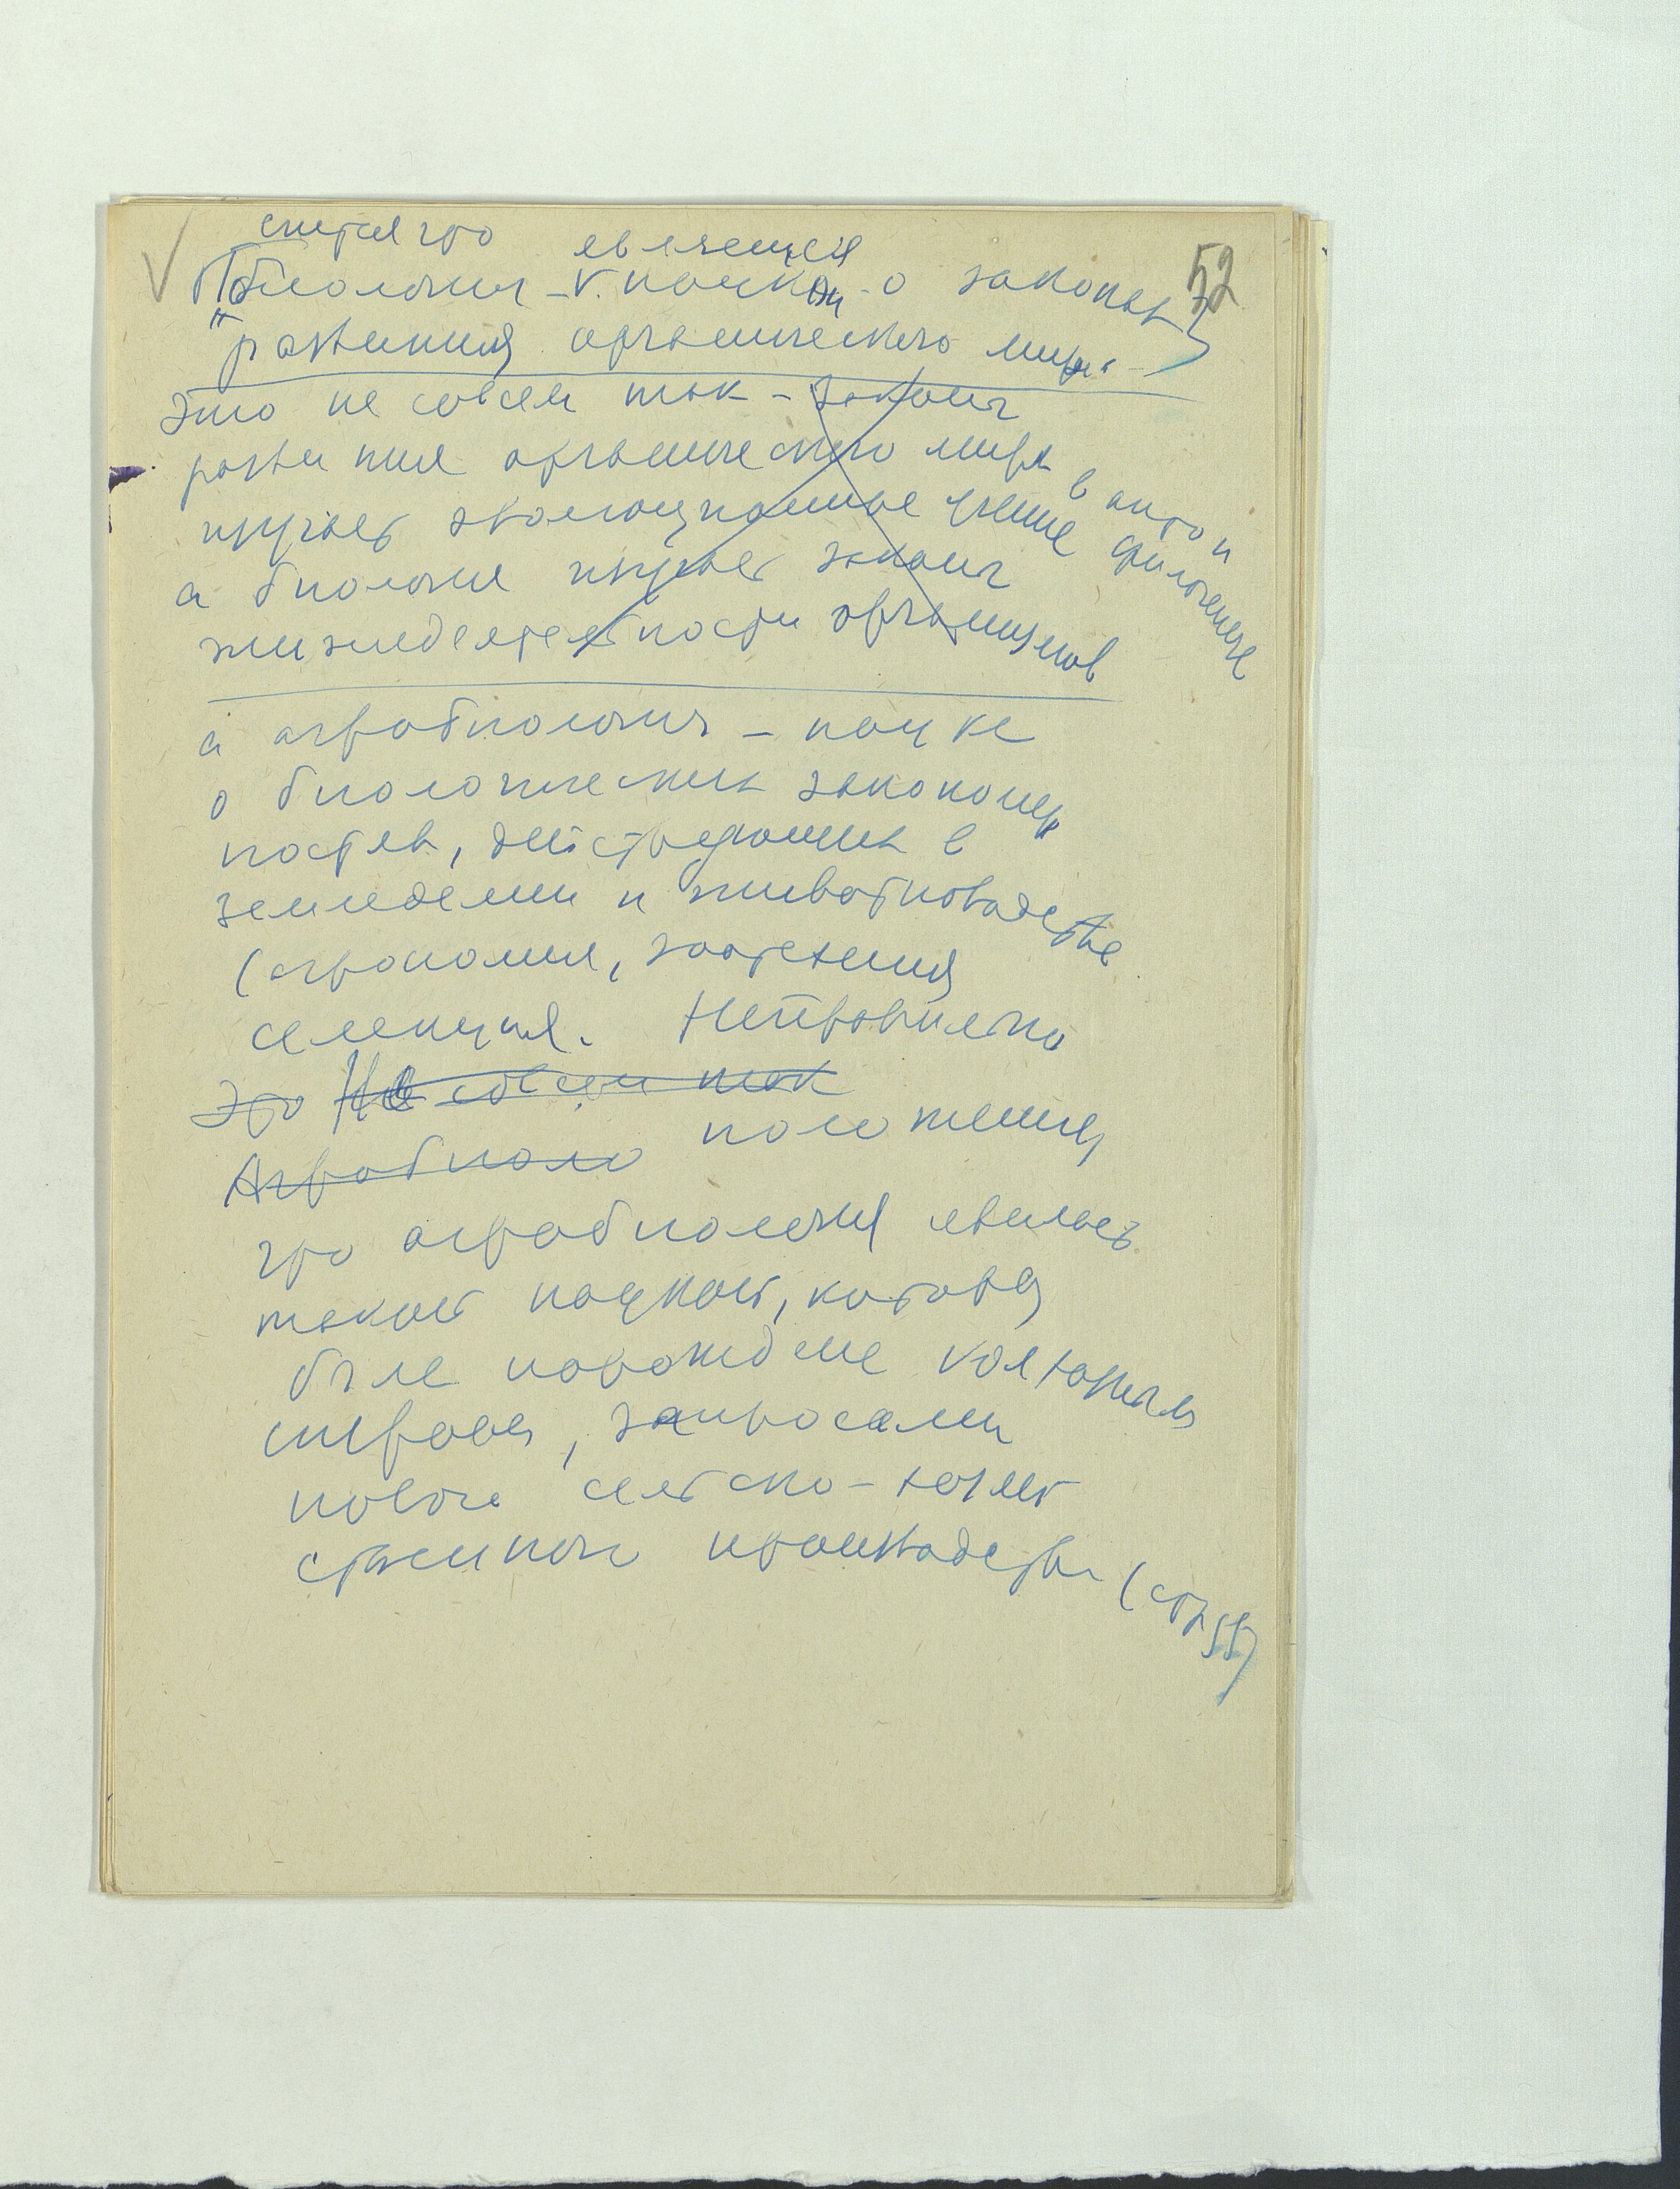 52
считая что
является
Биология – наукой о законах
развития органического мира
это не совсем так – законы
развития органического мира в онто и
изучает эволюционное учение филогенезе
а биология изучает законы
жизнедеятельности организмов
а агробиология – наука
о биологических закономер
ностях, действующих в
земледелии и животноводстве
(агрономия, зоотехния
селекция. Неправильно
Это Не совсем так
Агробиоло положение
что агробиология явилась
такой наукой, которая
была порождена колхозным
строем, запросами
новой сельско-хозяй
ственного производства (стр 55)